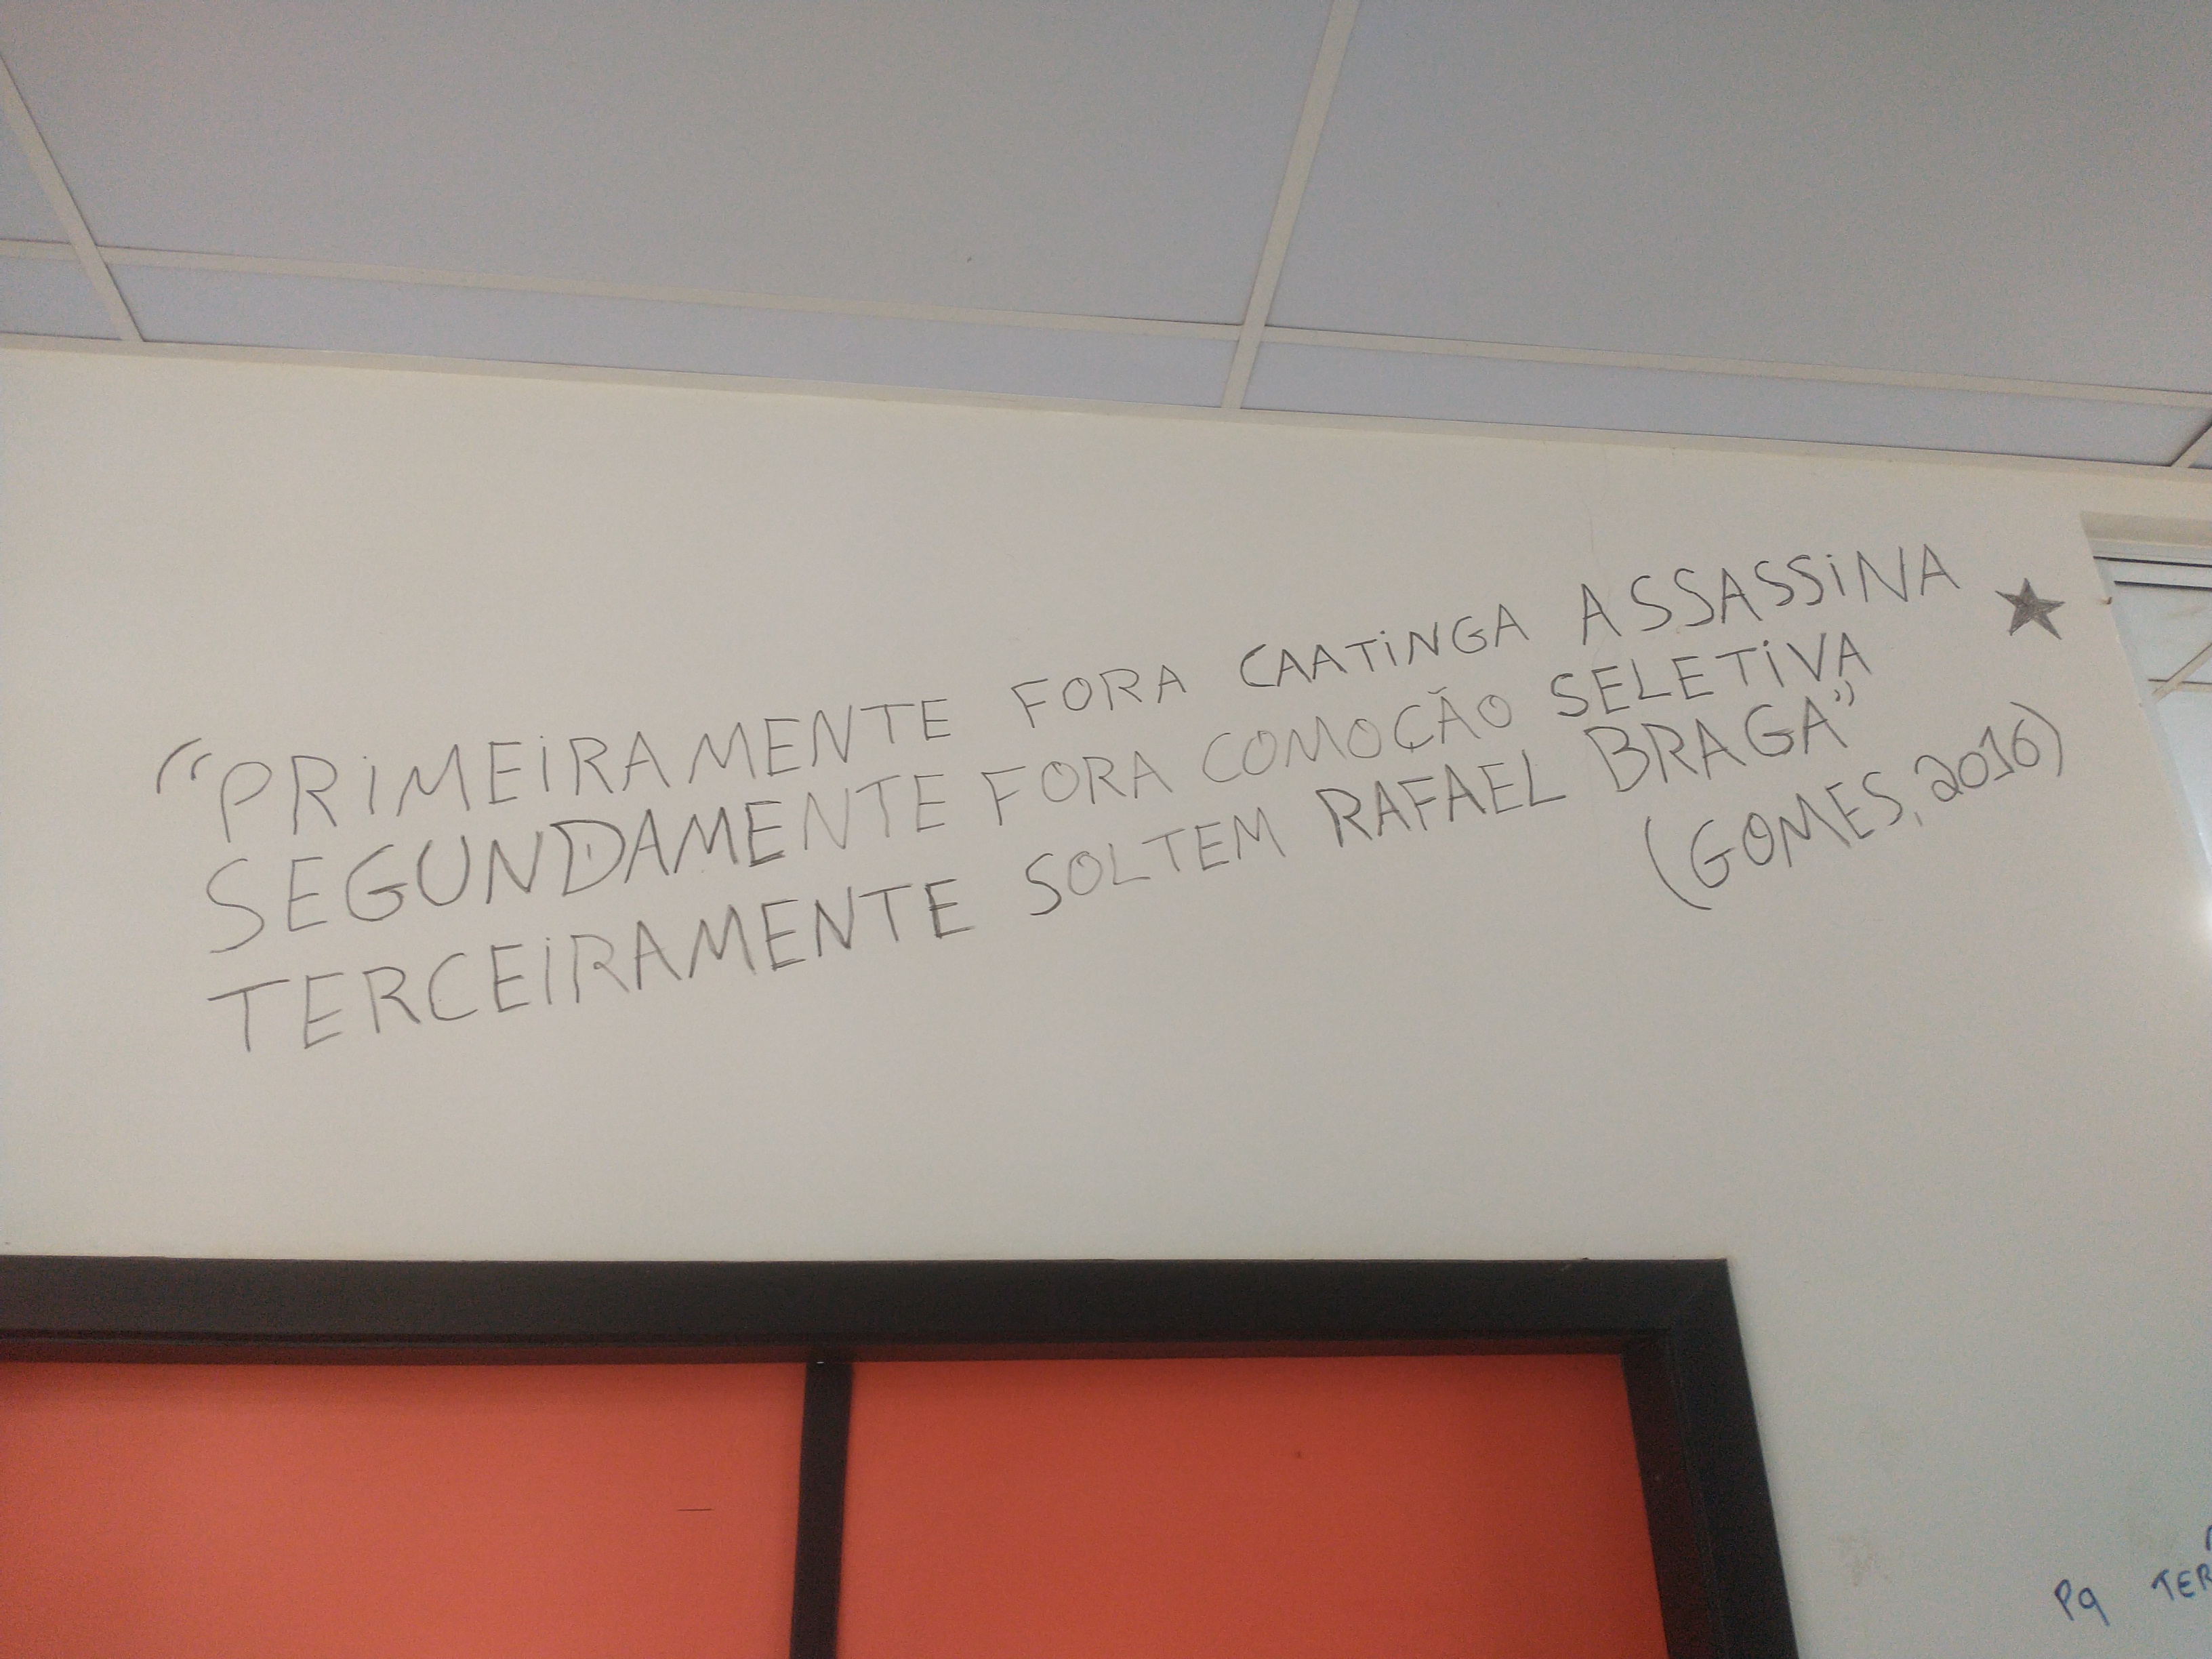 “PRIMEIRAMENTE FORA CAATINGA ASSASSINA ★
SEGUNDAMENTE FORA COMOÇÃO SELETIVA
TERCEIRAMENTE SOLTEM RAFAEL BRAGA”
(GOMES, 2016)
Pq